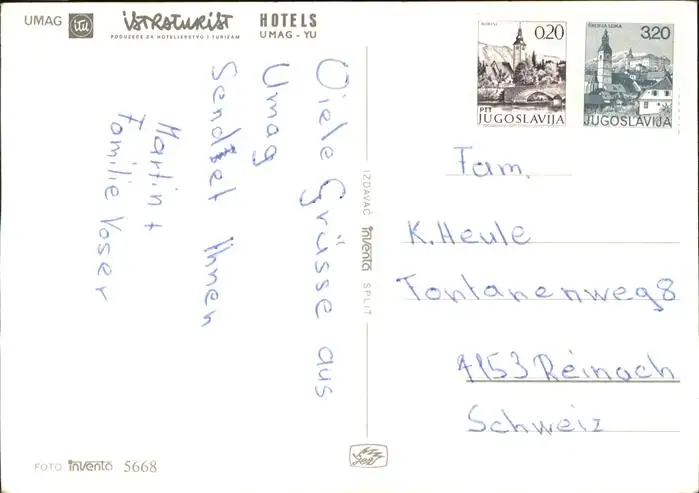 UMAG itu istraturist HOTELS
PODUZEĆE ZA HOTELIJERSTVO I TURIZAM UMAG - YU
Viele Grüsse aus
Umag
Sendet Ihnen
Martin +
Familie Voser
IZDAVAČ inventa SPLIT
BOHINJ
0,20
PTT
JUGOSLAVIJA
ŠKOFJA LOKA
3,20
JUGOSLAVIJA
Fam.
K. Heule
Fontanenweg 8
4153 Reinach
Schweiz
FOTO inventa 5668